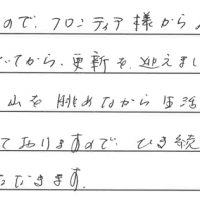 ので、フロンティア様から
いてから、更新を迎えまし
山を眺めながら生活
ておりますので、ひき続
ただきます。